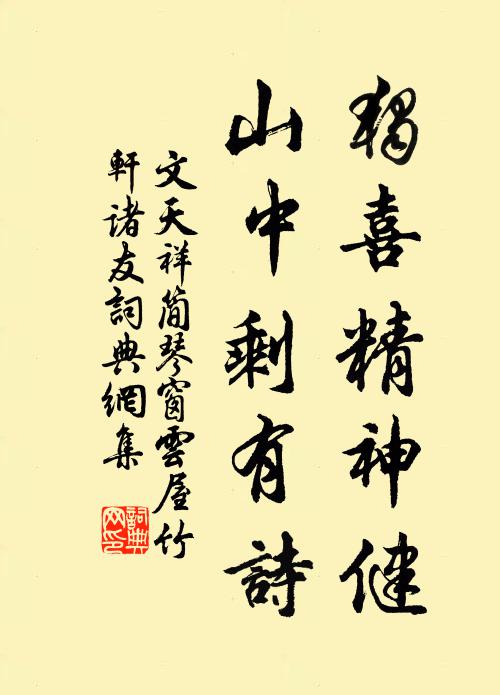 獨喜精神健
山中剩有詩
文天祥簡琴窗雲屋竹
軒诸友詞典網集
詞典网印